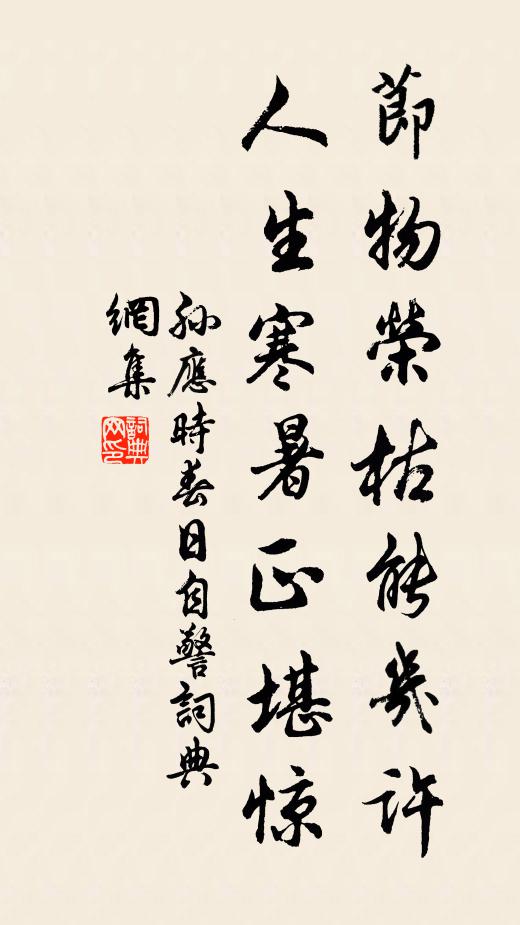 節物榮枯能幾許
人生寒暑正堪惊
孙應時春日自警詞典
網集
詞典
网印